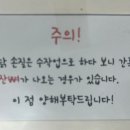 주의!
닭 손질은 수작업으로 하다 보니 간혹
잔뼈가 나오는 경우가 있습니다.
이 점 양해부탁드립니다!